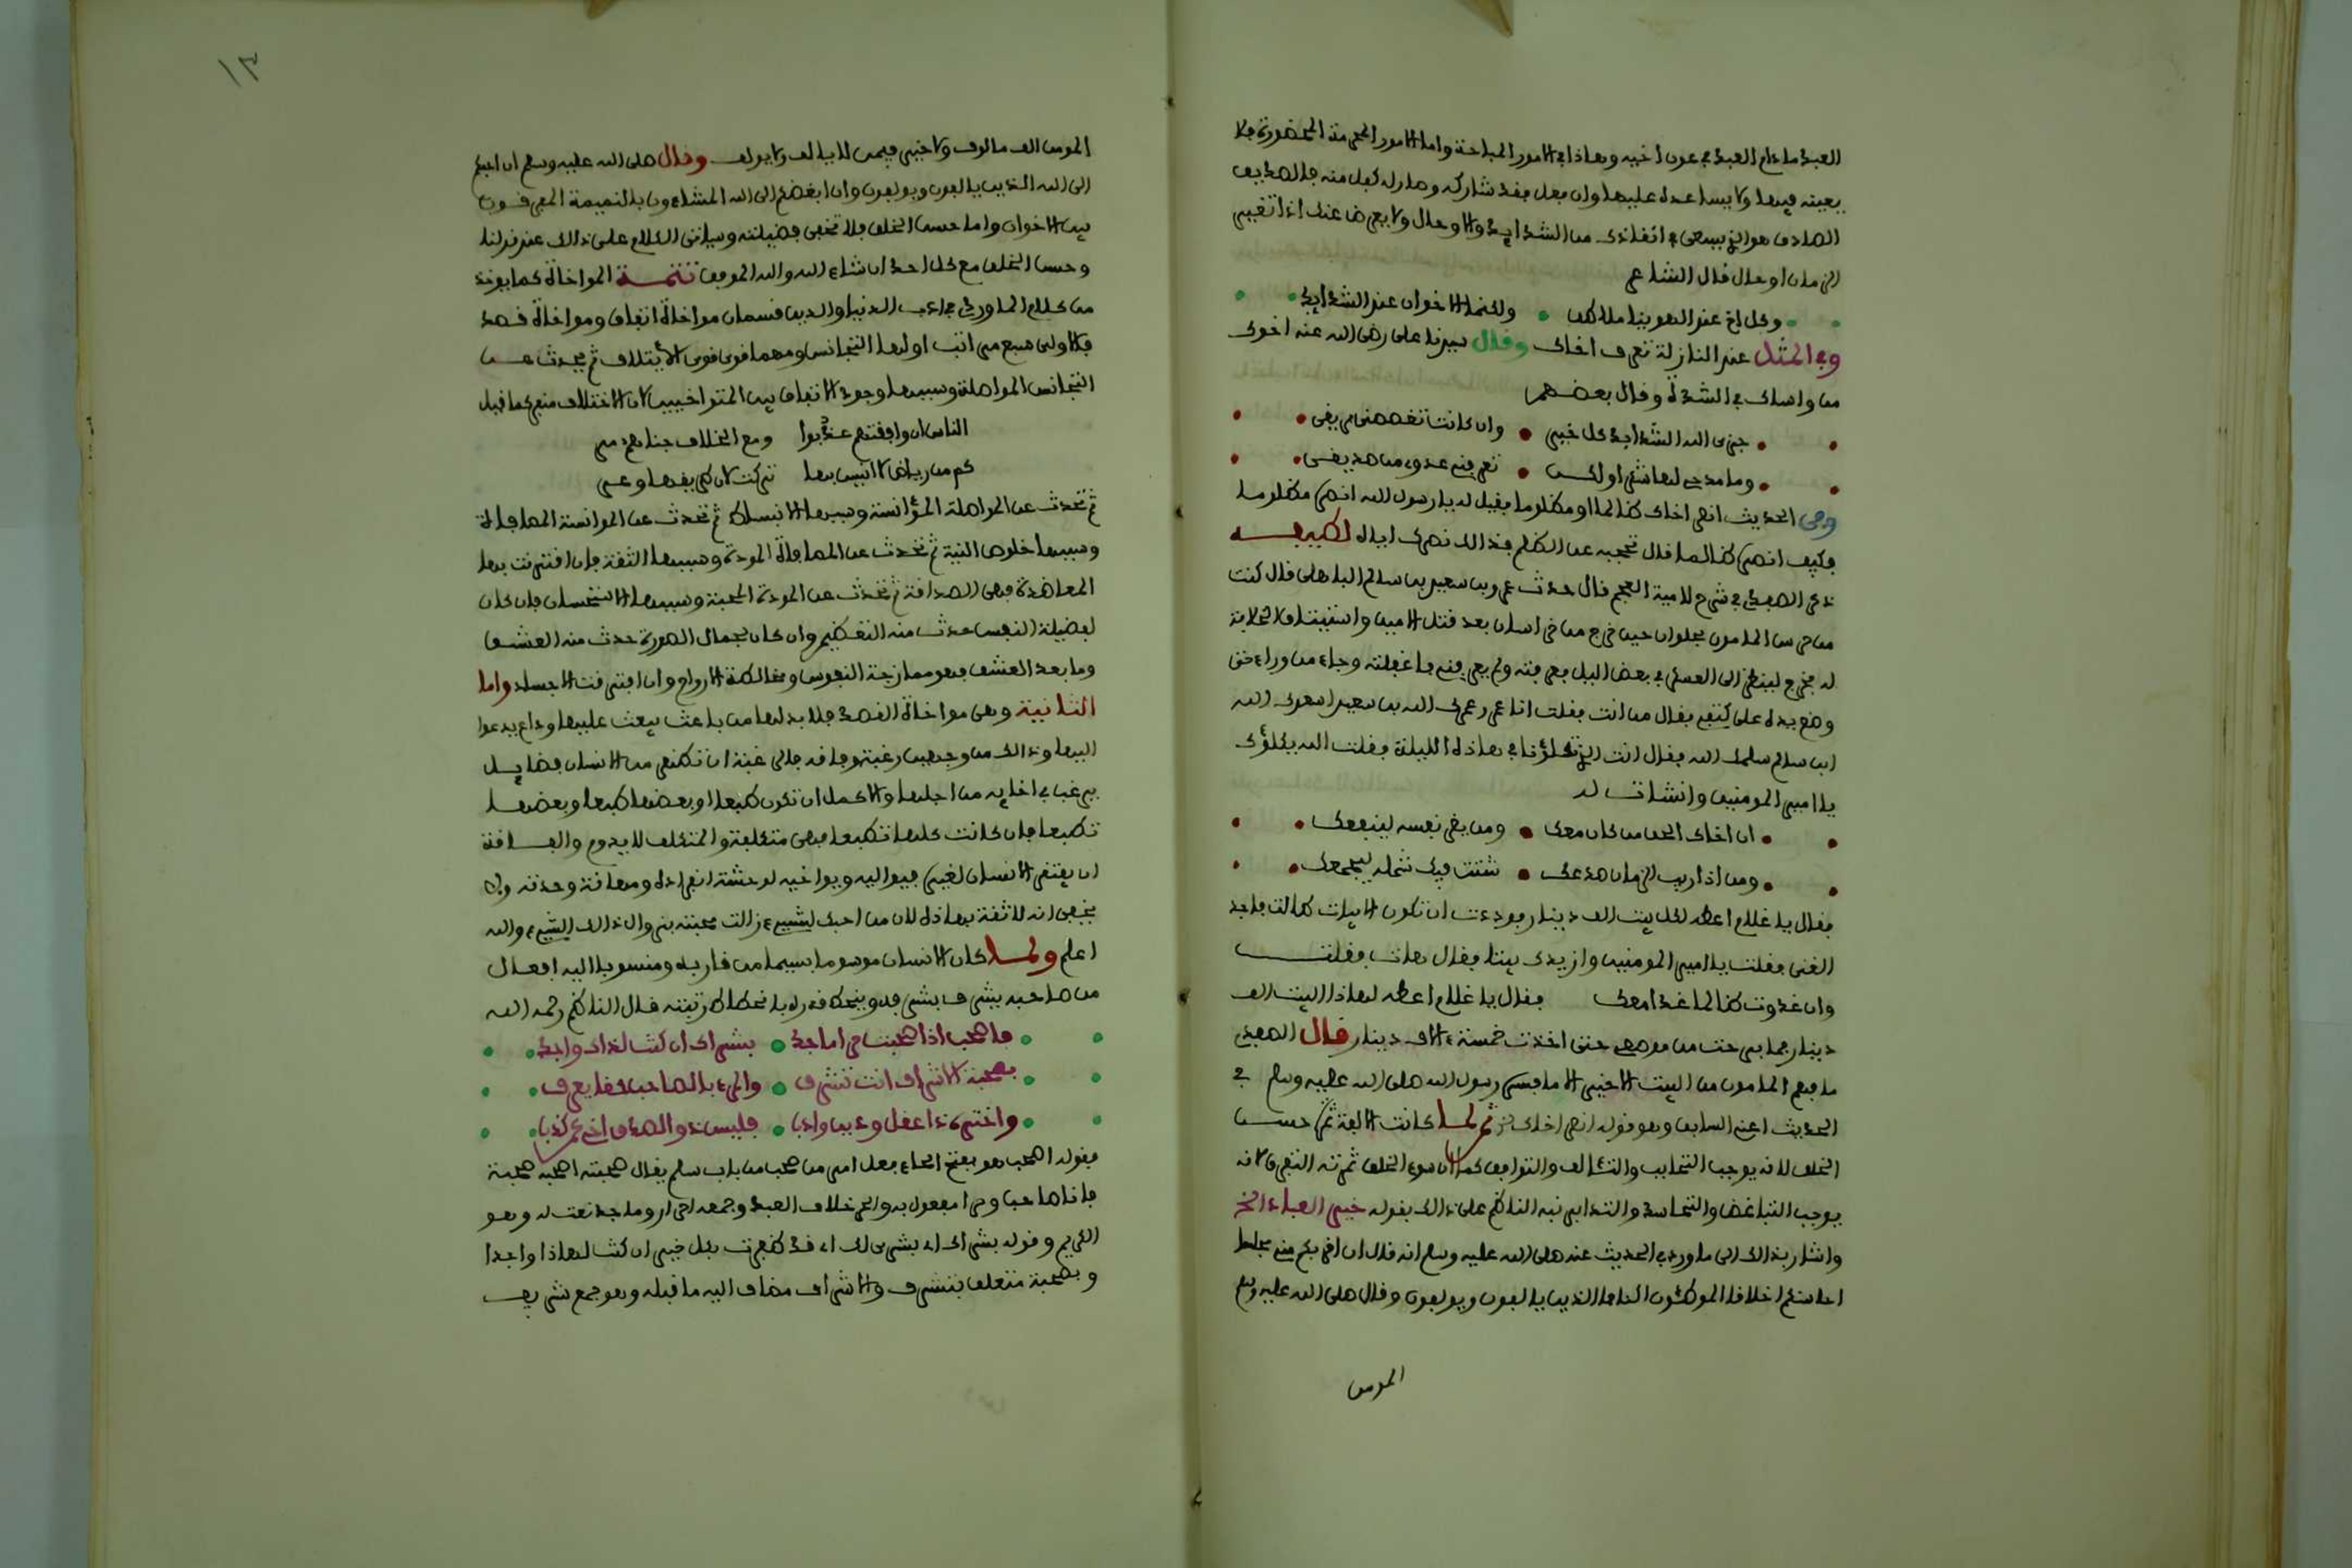 العبد ما دام العبد في عون أخيه وهاذا في الامور المباحة واما الامور المحرمة المحضورة فلا
يعينه فيها ولا يساعده عليها وان فعل فقد شاركه وصار له كفل منه فالصديق
الصادق هو الذي يسعى في انقاذك من الشدايد والاوحال ولا يعرض عنك اذا تغير
الزمان او حال قال الشاعر
وكل اخ عند الهوينا ملاطف ولكنما الاخوان عند الشدايد
وفي المثل عند النازلة تعرف اخاك وقال سيدنا علي رضي الله عنه اخوك
من واساك في الشدة وقال بعضهم
جزى الله الشدايد كل خير وان كانت تغصصني بريقي
وما مدحي لها شكرا ولكن تعرفت عدوي من صديقي
وفي الحديث انصر اخاك ظالما او مظلوما فقيل له يا رسول الله انصره مظلوما
فكيف انصره ظالما قال تحجبه عن الظلم فذالك نصرك اياه لطيفة
ذكر الصفدي في شرح لامية العجم قال حدث عمرو بن سعيد بن سالم الباهلي قال كنت
من حرس المامون بحلوان حين خرج من خراسان بعد قتل الامين واستيثاق الخلافة
له فخرج لينظر الى العسكر في بعض الليل فعرفته ولم يعرفني فاغفلته وجاء من وراءى حتى
وضع يده على كتفي فقال من انت فقلت انا عمرو عمرك الله بن سعيد اسعدك الله
ابن سالم سلمك الله فقال انت الذي تكلؤنا في هاذه الليلة فقلت الله يكلؤك
يا امير المومنين وانشات له
ان اخاك الحق من كان معك ومن يضر نفسه لينفعك
ومن اذا ريب الزمان صدعك شتت فيك شمله ليجمعك
فقال يا غلام اعطه لكل بيت الف دينار فوددت ان تكون الابيات طالت فاجد
الغنى فقلت يا امير المومنين وازيدك بيتا فقال هات فقلت
وان غدوت ظالما غدا معك فقال يا غلام اعطه لهاذا البيت الف
دينار فما برحت من موضعي حتى اخذت خمسة ءالاف دينار قال الصفدي
ما فهم المامون من البيت الاخير الا ما فسره رسول الله صلى الله عليه وسلم في
الحديث اعني السابق وهو قوله انصر اخاك ثم لما كانت الالفة ثمرة حسن
الخلق لانه يوجب التحابب والتئالف والتوافق كما ان سوء الخلق ثمرته التفرق لانه
يوجب التباغض والتحاسد والتدابر نبه الناظم على ذالك بقوله خير العباد الخ
واشار بذالك الى ما ورد في الحديث عنه صلى الله عليه وسلم انه قال ان اقربكم مني مجلسا
احاسنكم اخلاقا الموطئون اكنافا الذين يالفون ويولفون وقال صلى الله عليه وسلم
المومن
١٣
المومن الف مالوف ولا خير فيمن لا يالف ولا يولف وقال صلى الله عليه وسلم ان احبكم
الى الله الذين يالفون ويولفون وان ابغضكم الى الله المشاءون بالنميمة المفرقون
بين الاخوان واما حسن الخلق فلا تخفى فضيلته وسياتي الكلام على ذالك عند قولنا
وحسن الخلق مع كل احد ان شاء الله والله الموفق تتمة المواخاة كما يوخذ
من كلام الماوردي في ادب الدنيا والدين قسمان مواخاة اتفاق ومواخاة قصد
فالاولى سبع مراتب اولها التجانس ومهما قوي قوي الائتلاف ثم يحدث عن
التجانس المواصلة وسببها وجود الاتفاق بين المتواخيين لان الاختلاف منفر كما قيل
الناس ان وافقتهم عذبوا ومع الخلاف جناهم مر
كم من رياض لا انيس بها تركت لان طريقها وعر
ثم تحدث عن المواصلة المؤانسة وسببها الانبساط ثم تحدث عن الموانسة المصافاة
وسببها خلوص النية ثم تحدث عن المصافاة المودة وسببها الثقة فان اقترنت بها
المعاضدة فهي الصداقة ثم تحدث عن المودة المحبة وسببها الاستحسان فان كان
لفضيلة النفس حدث منه التعظيم وان كان لجمال الصورة حدث منه العشق
وما بعد العشق فهو ممازجة النفوس ومخالطة الارواح وان افترقت الاجساد واما
الثانية وهي مواخاة القصد فلا بد لها من باعث يبعث عليها وداع يدعوا
اليها وذالك من وجهين رغبة وفاقة فالرغبة ان تظهر من الانسان فضايل
يرغب في اخايه من اجلها والاكمل ان تكون طبعا او بعضها طبعا وبعضها
تطبعا فان كانت كلها تطبعا فهي متكلفة والمتكلف لا يدوم والفاقة
ان يفتقر الانسان لغيره فيواليه ويواخيه لوحشة انفراده ومهانة وحدته ولا
يخفى انه لا ثقة بهاذه لان من احبك لشيء زالت محبته بزوال ذالك الشيء والله
اعلم ولما كان الانسان موسوما بسيما من قاربه ومنسوبا اليه افعال
من صاحبه يشرف بشرفه وينحط قدره بانحطاط رتبته قال الناظم رحمه الله
فاصحب اذا صحبت حرا ماجدا بشراك ان كنت لذاك واجدا
بصحبة الاشراف انت تشرف والمرء بالصاحب حقا يعرف
واختره ذا عقل ودين وادبا فليس ذو الصدق اخا من كذبا
فقوله اصحب هو بفتح الحاء فعل امر من صحب من باب سلم يقال صحبته اصحبه صحبة
فانا صاحب وحرا مفعول به والحر خلاف العبد وجمعه احرار وماجدا نعت له وهو
الكريم وقوله بشراك اي بشرى لك اي قد ظفرت بكل خير ان كنت لهاذا واجدا
وبصحبة متعلق بتشرف والاشراف مضاف اليه ما قبله وهو جمع شريف